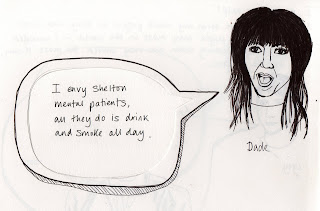 I envy Shelton
mental patients,
all they do is drink
and smoke all day.
Dade